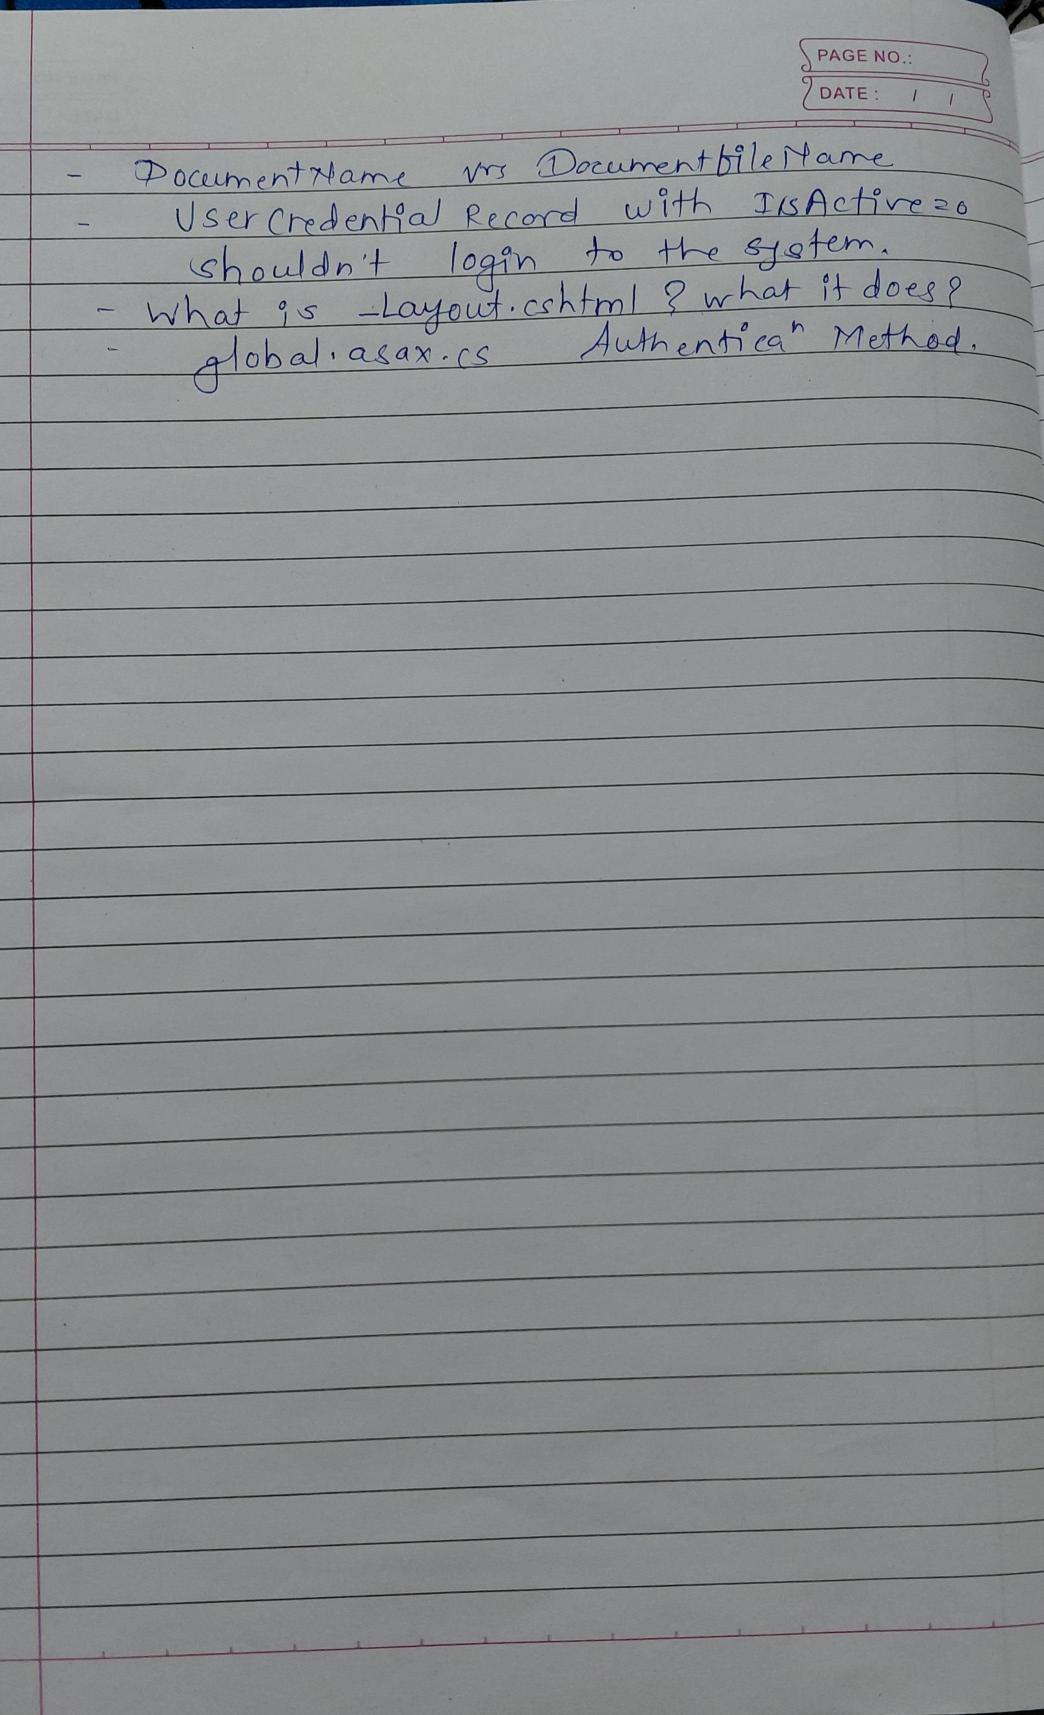 PAGE NO.:
DATE: / /
- DocumentName vrs DocumentfileName
- UserCredential Record with IsActive=0
shouldn't login to the system.
- What is _Layout.cshtml? what it does?
- global.asax.cs Authenticaⁿ Method.